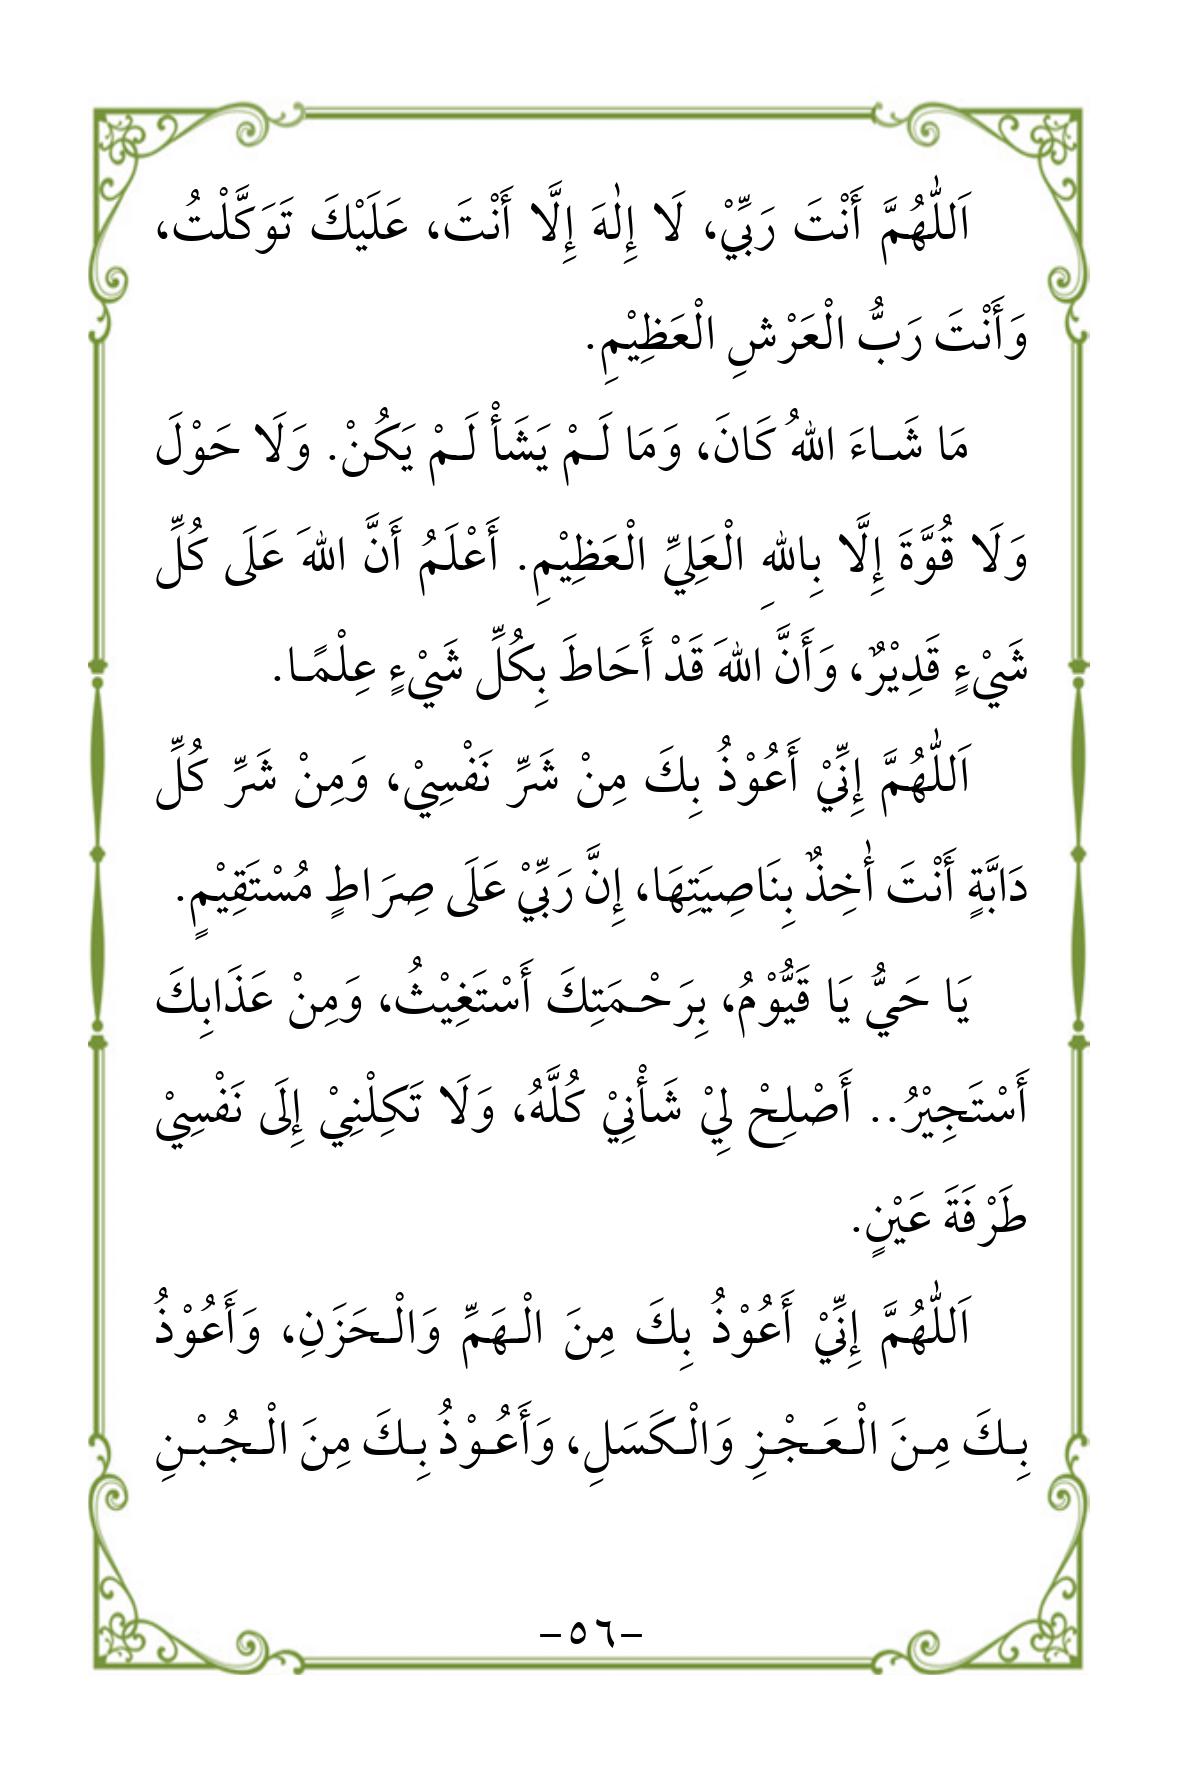 اَللّٰهُمَّ أَنْتَ رَبِّيْ، لَا إِلٰهَ إِلَّا أَنْتَ، عَلَيْكَ تَوَكَّلْتُ،
وَأَنْتَ رَبُّ الْعَرْشِ الْعَظِيْمِ.
مَا شَـاءَ اللهُ كَانَ، وَمَا لَـمْ يَشَأْ لَـمْ يَكُنْ. وَلَا حَوْلَ
وَلَا قُوَّةَ إِلَّا بِاللهِ الْعَلِيِّ الْعَظِيْمِ. أَعْلَمُ أَنَّ اللهَ عَلَى كُلِّ
شَيْءٍ قَدِيْرٌ، وَأَنَّ اللهَ قَدْ أَحَاطَ بِكُلِّ شَيْءٍ عِلْمًـا.
اَللّٰهُمَّ إِنِّيْ أَعُوْذُ بِكَ مِنْ شَرِّ نَفْسِيْ، وَمِنْ شَرِّ كُلِّ
دَابَّةٍ أَنْتَ أٰخِذٌ بِنَاصِيَتِهَا، إِنَّ رَبِّيْ عَلَى صِرَاطٍ مُسْتَقِيْمٍ.
يَا حَيُّ يَا قَيُّوْمُ، بِرَحْـمَتِكَ أَسْتَغِيْثُ، وَمِنْ عَذَابِكَ
أَسْتَجِيْرُ.. أَصْلِحْ لِيْ شَأْنِيْ كُلَّهُ، وَلَا تَكِلْنِيْ إِلَى نَفْسِيْ
طَرْفَةَ عَيْنٍ.
اَللّٰهُمَّ إِنِّيْ أَعُوْذُ بِكَ مِنَ الْـهَمِّ وَالْـحَزَنِ، وَأَعُوْذُ
بِـكَ مِـنَ الْـعَـجْـزِ وَالْـكَسَلِ، وَأَعُـوْذُ بِـكَ مِنَ الْـجُـبْـنِ
-٥٦-